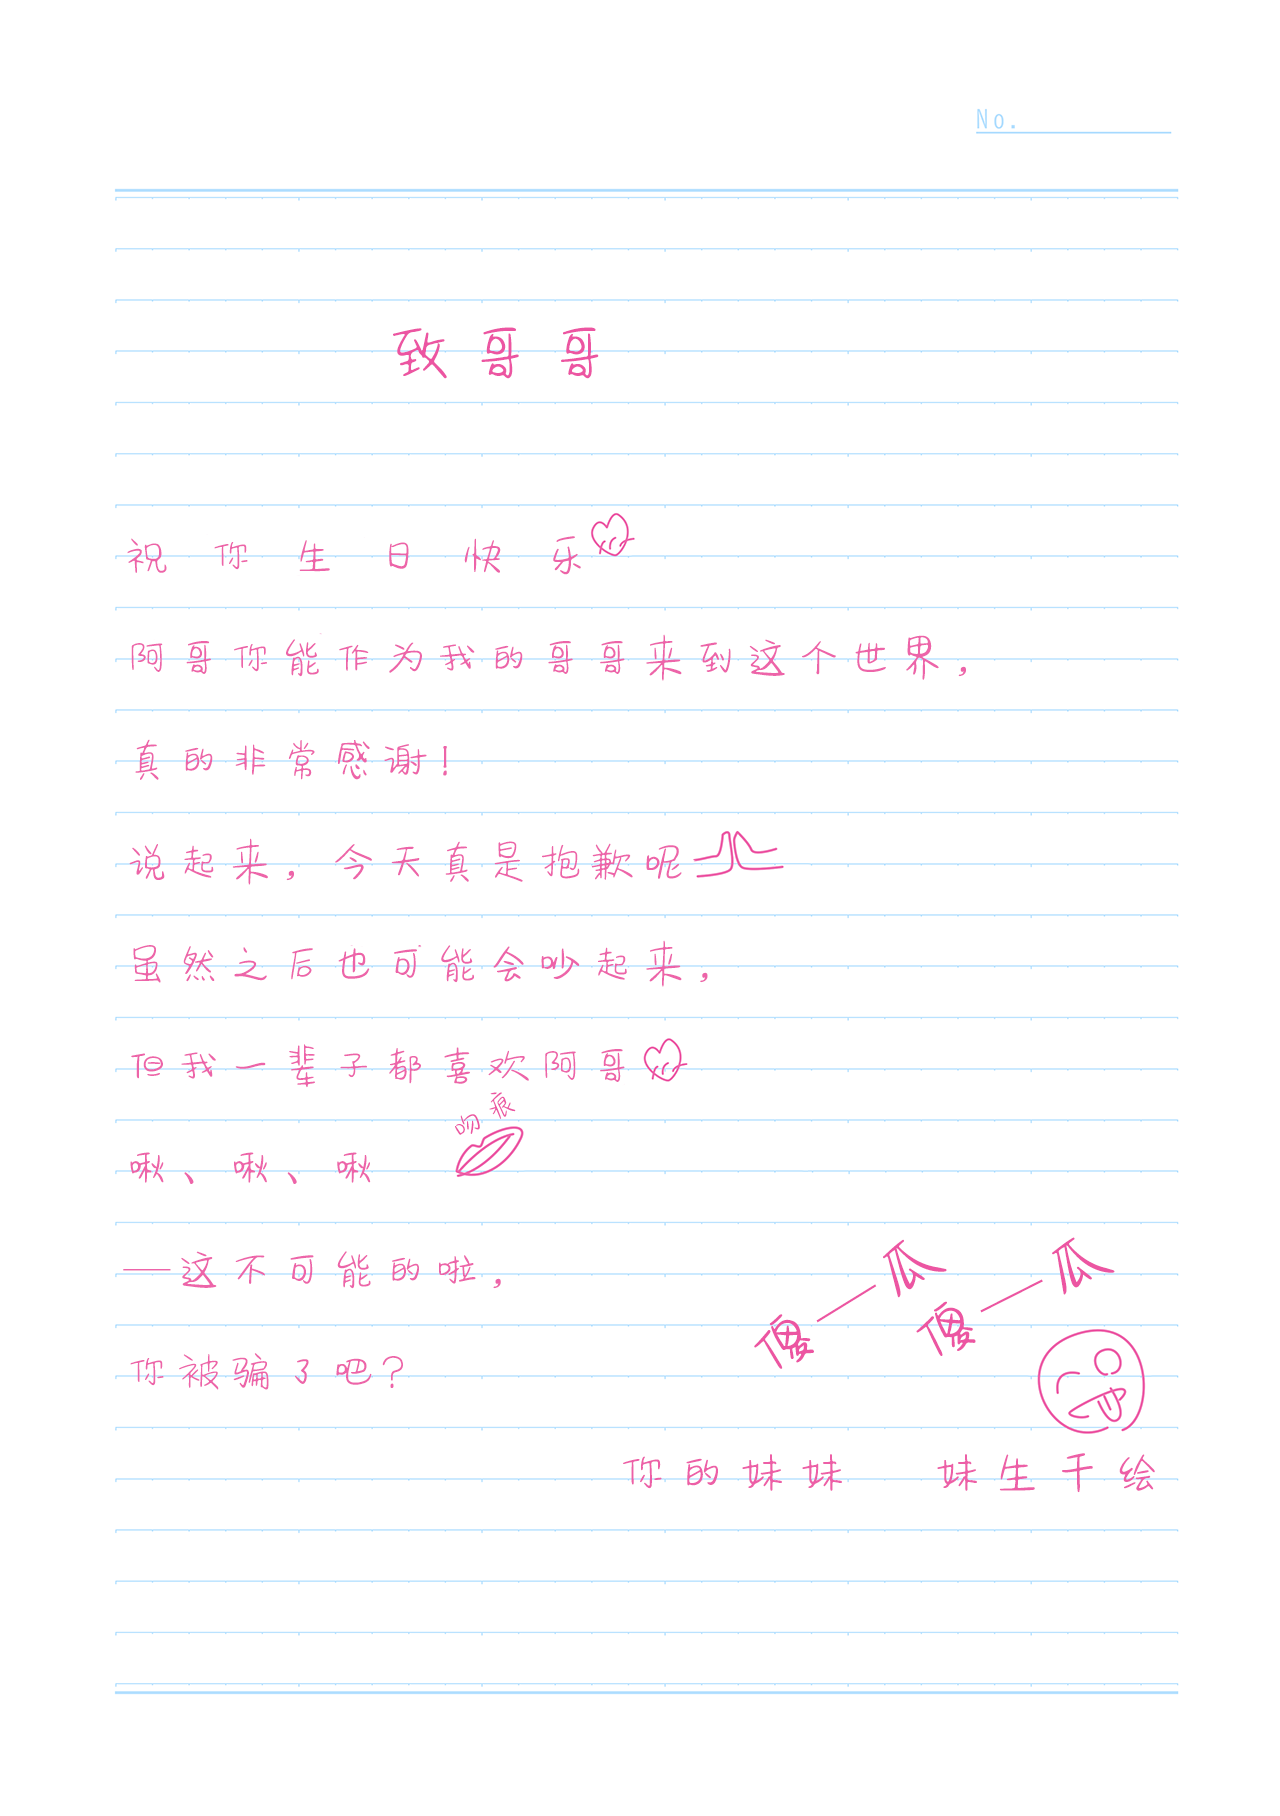 No.
致哥哥
祝你生日快乐
阿哥你能作为我的哥哥来到这个世界,
真的非常感谢!
说起来,今天真是抱歉呢
虽然之后也可能会吵起来,
但我一辈子都喜欢阿哥
吻痕
啾、啾、啾
——这不可能的啦,
傻—瓜 傻—瓜
你被骗了吧?
你的妹妹 妹生千绘